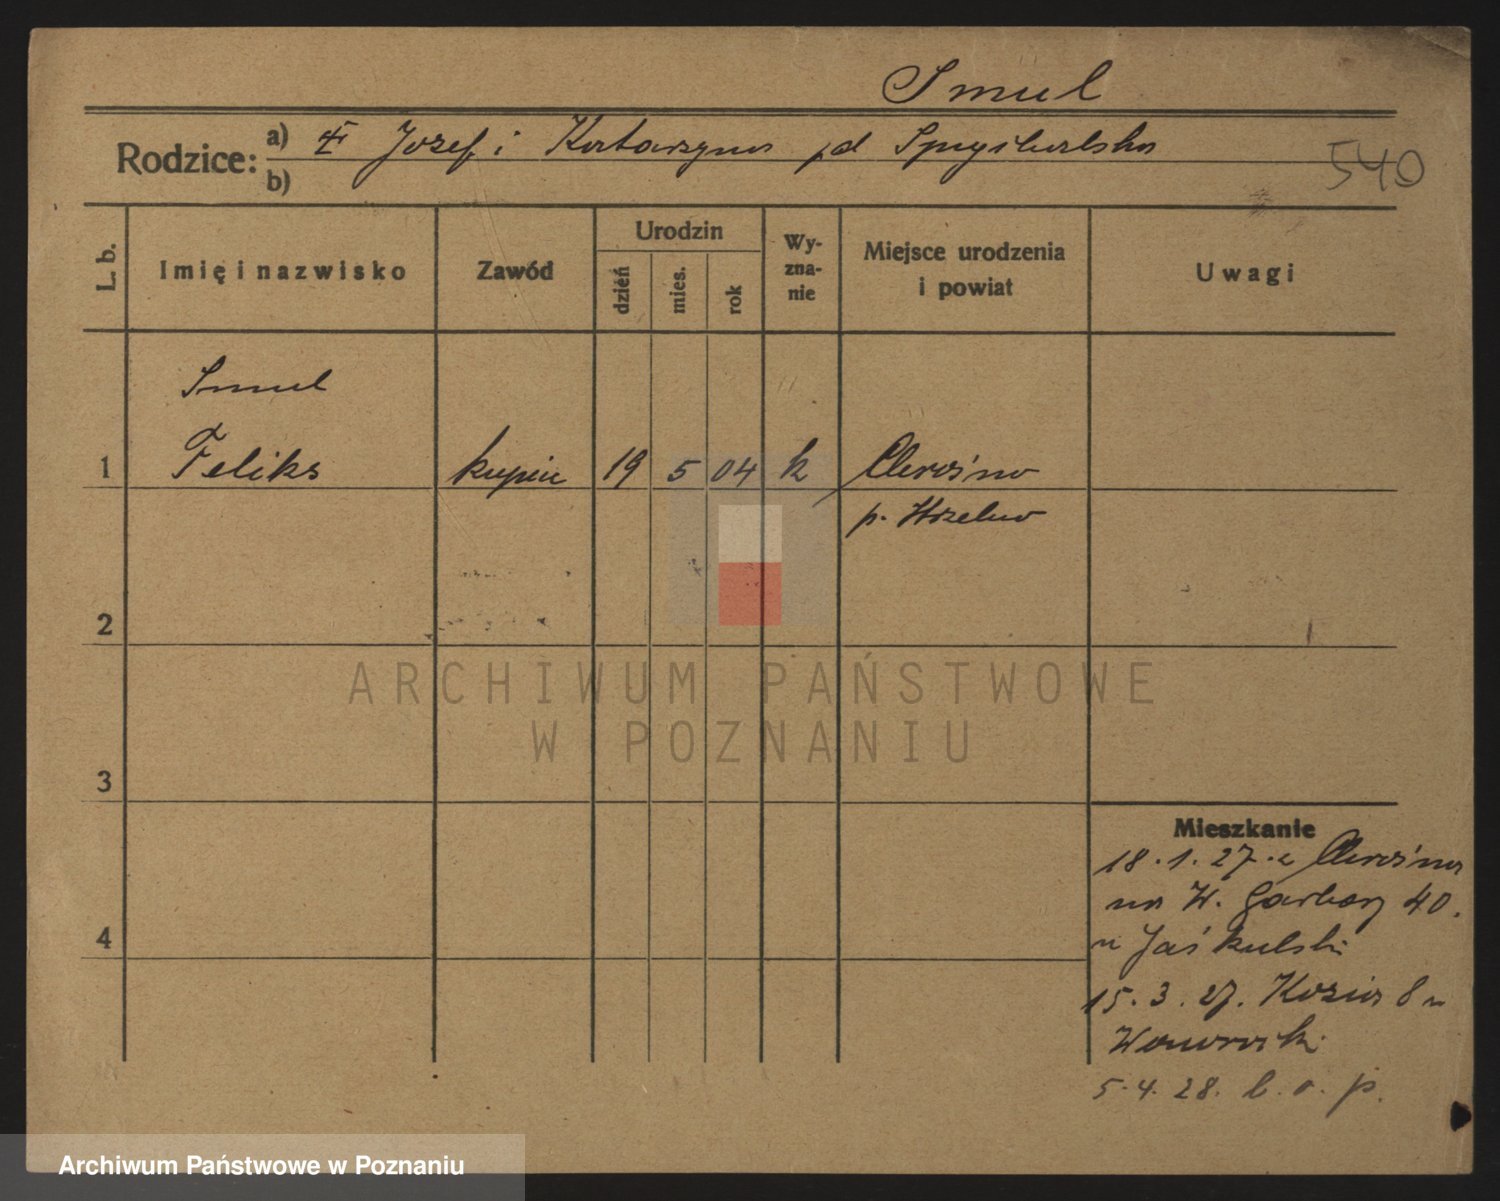 Smul
Rodzice: a) Józef i Katarzyna pd
b)
540
L. b.
Imię i nazwisko
Zawód
Urodzin
dzień
mies.
rok
Wy-
zna-
nie
Miejsce urodzenia
i powiat
Uwagi
Smul
1 Feliks kupiec 19 5 04 k
p.
2
3
4
Mieszkanie
18.1.27. z
na W. Garbary 40.
u Jaśkulski
15.3.27. Kozia 8 u
5.4.28. b. o. p.
ARCHIWUM PAŃSTWOWE
W POZNANIU
Archiwum Państwowe w Poznaniu